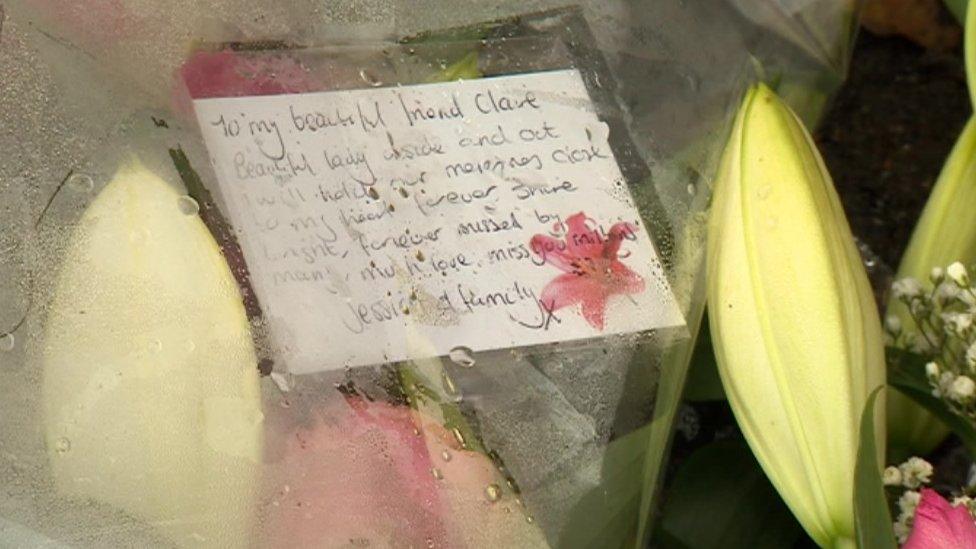 To my beautiful friend Claire
Beautiful lady inside and out
I will hold our memories close
to my heart forever shine
bright, forever missed by
many, much love, miss you millions
Jessica & family x